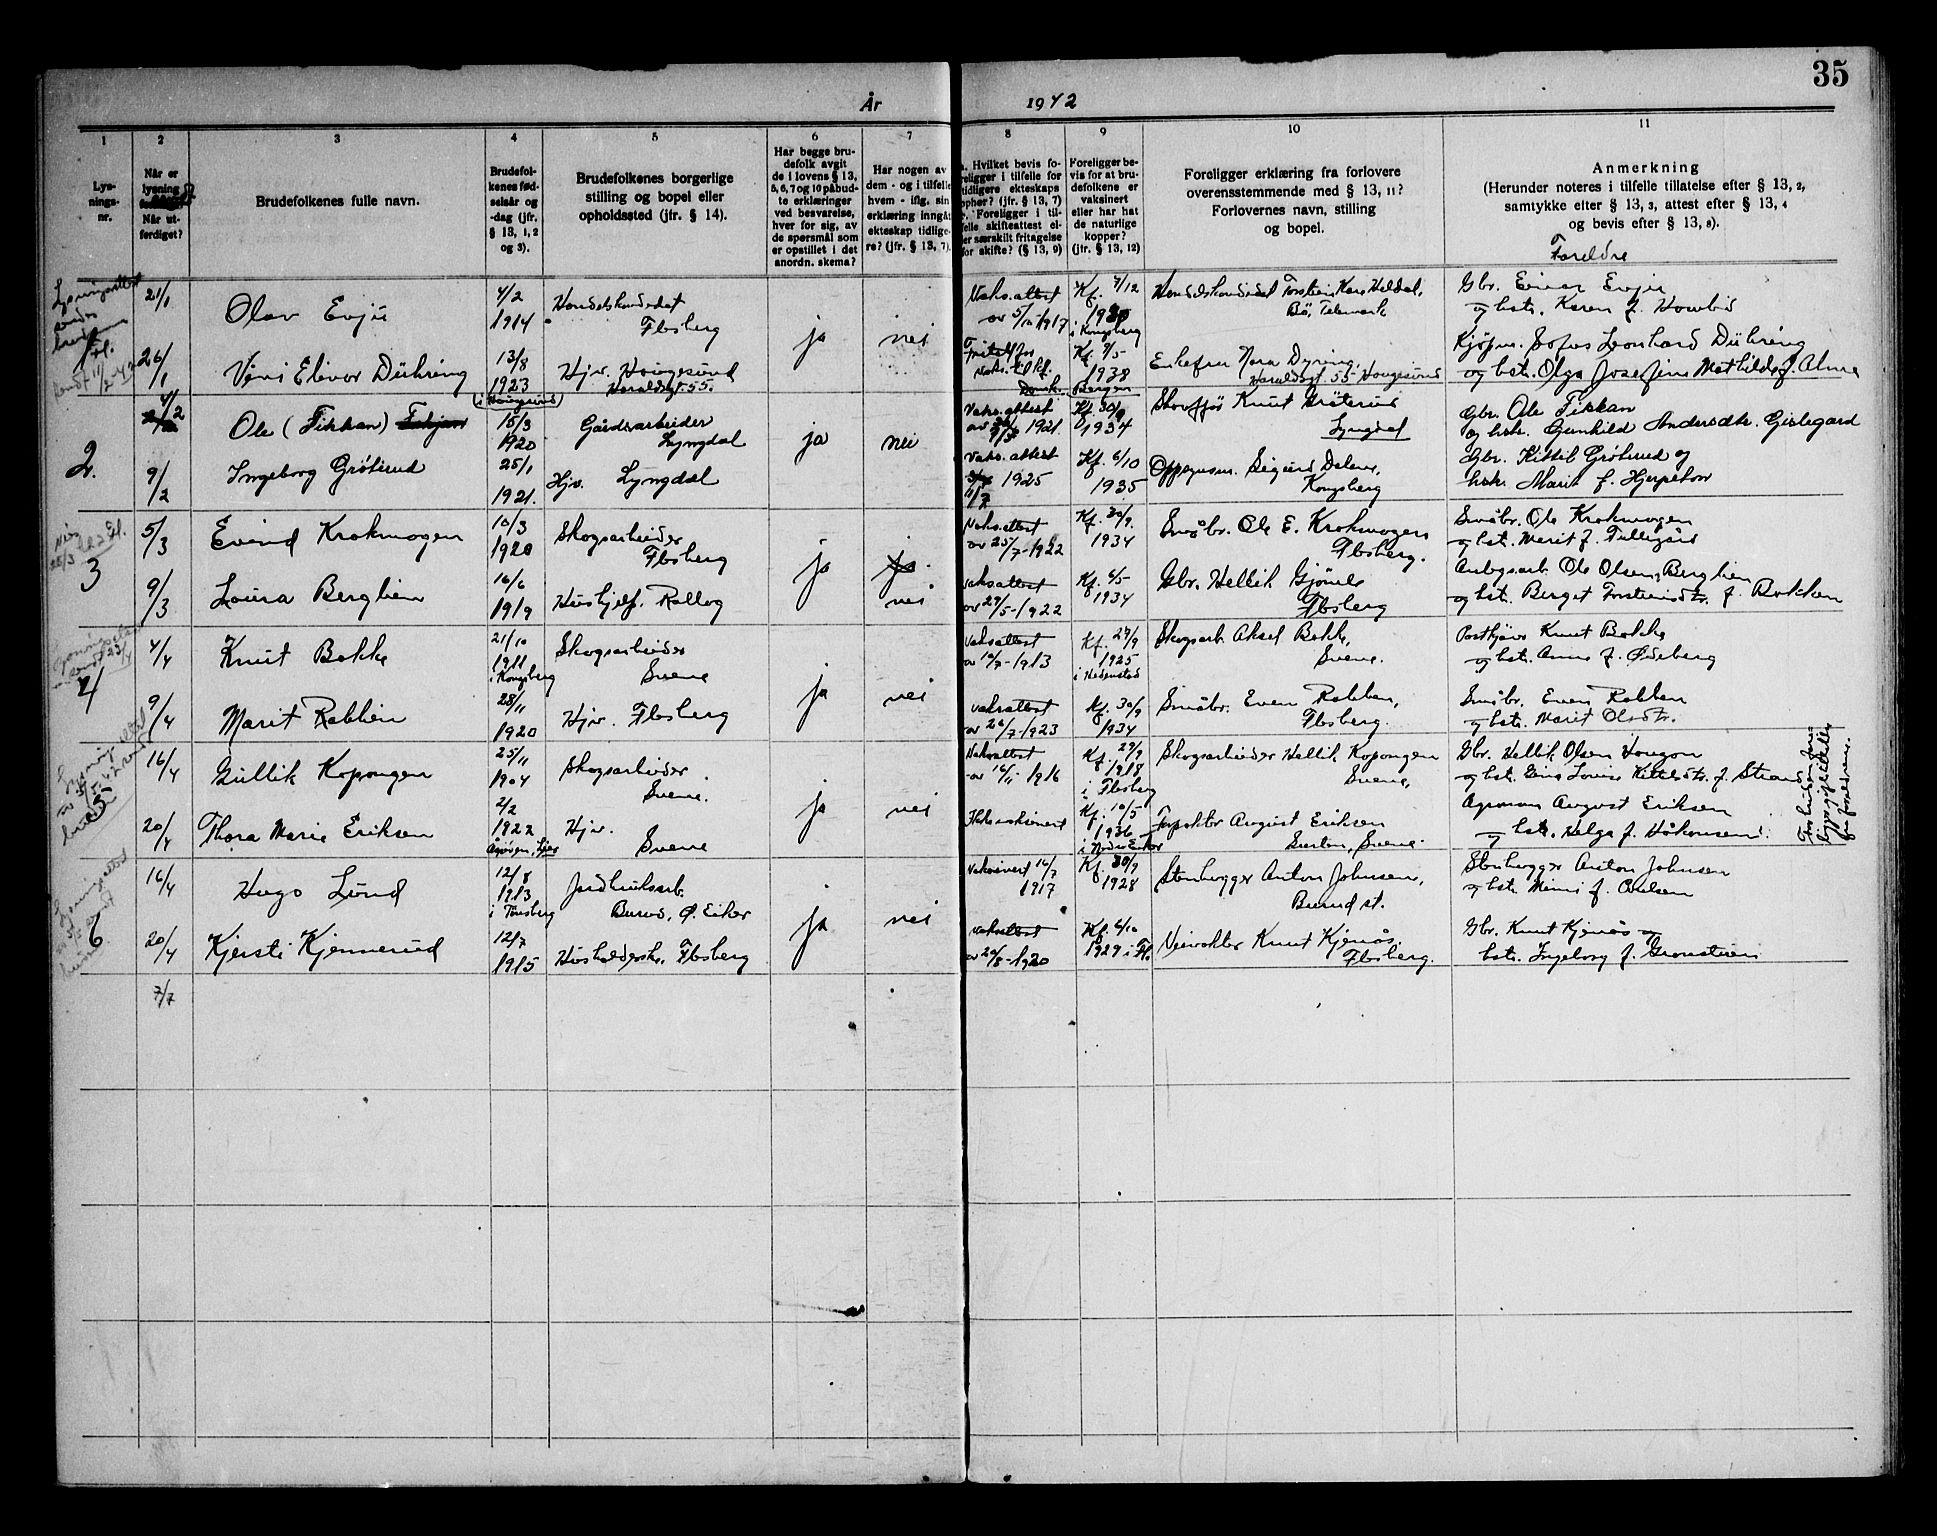 35
År 1942
1 2 3 4 5 6 7 8 9 10 11
Lys-
nings-
nr.
Når er
lysning
Når ut-
ferdiget?
Brudefolkenes fulle navn.
Brudefol-
kenes fød-
selsår og
-dag (jfr.
§ 13, 1, 2
og 3).
Brudefolkenes borgerlige
stilling og bopel eller
opholdssted (jfr. § 14).
Har begge bru-
defolk avgit
de i lovens § 13,
5, 6, 7 og 10 påbud-
te erklæringer
ved besvarelse,
hver for sig, av
de spørsmål som
er opstillet i det
anordn. skema?
Har nogen av
dem - og i tilfelle
hvem - iflg. sin
erklæring inngåt
ekteskap tidlige-
re? (jfr. § 13, 7).
Hvilket bevis fo-
religger i tilfelle for
tidligere ekteskaps
ophør? (§ 13, 7)
Foreligger i til-
felle skifteattest el-
ler særskilt fritagelse
for skifte? (§ 13, 9)
Foreligger be-
vis for at bru-
defolkene er
vaksinert
eller har hat
de naturlige
kopper?
(jfr. § 13, 12)
Foreligger erklæring fra forlovere
overensstemmende med § 13, 11?
Forlovernes navn, stilling
og bopel.
Anmerkning
(Herunder noteres i tilfelle tillatelse efter § 13, 2,
samtykke efter § 13, 3, attest efter § 13, 4
og bevis efter § 13, 8).
Foreldre
1
21/1
Olav Evju
4/2
1914
Handelskandidat
Flesberg
ja
nei
Vaks.attest
av 5/10 1917
Kf. 4/12
i Kongsberg
Handelskandidat Torstein Kåre Heldal,
Bø, Telemark
Gbr. Einar Evju
og hstr. Karen f.
26/1
Vivi Elinor Dühring
13/8
1923
(i Haugesund)
Hjv. Haugesund
Haraldsgt. 55.
Fritatt for
vaks. til kf.
Kf. 8/5
1938
Bergen
Enkefru Nora Dyring
Haraldsgt. 55 Haugesund
Kjøpm. Sofus Leonhard Dühring
og hstr. Olga Josefine Mathilde f. Alme
2.
4/2
Ole (Fikkan)
15/3
1920
Gårdsarbeider
Lyngdal
ja
nei
Vaks.attest
1921.
Kf. 30/9
1934
Knut Grøterud
Lyngdal
Gbr. Ole Fikkan
og hstr. Gunhild Andersdtr. Gislegaard
9/2
Ingeborg Grøterud
25/1
1921.
Hjv. Lyngdal
Vaks.attest
1925
Kf. 6/10
1935
Oppsynsm. Sigurd Dalene,
Kongsberg
Gbr. Kittil Grøterud og
hstr. Marit f. Hjerpetow
3
5/3
Eivind Krokmogen
10/3
1920
Skogsarbeider
Flesberg
ja
ja
Vaks.attest
av 25/7-1922
Kf. 30/9.
1934
Småbr. Ole E. Krokmogen
Flesberg.
Småbr. Ole Krokmogen
og hstr. Marit f. Fulligård
9/3
Laura Berglien
16/6
1919
Hushjelp. Rollag
nei
Vaks.attest
av 29/5-1922
Kf. 6/5
1934
Gbr. Hellik Gjønes
Flesberg
Anlegsarb. Ole Olsen Berglien
og hstr. Berget Torsteinsdtr. f. Bakken
4
4/4
Knut Bakke
21/10
1911
i Kongsberg
Skogsarbeider
Svene
ja
nei
Vaksattest
av 10/7-1913
Kf. 27/9
1925
i Hedenstad
Skogsarb. Aksel Bakke,
Svene.
Postkjører Knut Bakke
og hstr. Anne f. Ødeberg
9/4
Marit Rabben
28/11
1920
Hjv. Flesberg
Vaksattest
av 26/7-1923
Kf. 30/9
1934
Småbr. Even Rabben,
Flesberg.
Småbr. Even Rabben
og hstr. Marit Olsdtr.
5
16/4
Gullik Kopangen
25/11
1904
Skogsarbeider
Svene.
ja
nei
Vaksattest
av 16/11-1916
Kf. 29/9
1918
i Flesberg
Skogsarbeider Hellik Kopangen
Svene,
Gbr. Hellik Olsen Haugan
og hstr. Gina Louise Kittilsdtr. f. Strand
20/4
Thora Marie Eriksen
2/2
1922
Hjv.
Svene
Ikke vaksinert
Kf. 10/5
1936
i Nedre Eiker
Inspektør August Eriksen
Svene.
Agronom August Eriksen
og hstr. Helga f. Håkonsen
6
16/4
Hugo Lund
12/8
1913
i Tønsberg
Jordbruksarb.
Burud, Ø. Eiker
ja
nei
Vaksinert 16/7
1917
Kf. 30/9
1928
Stenhugger Anton Johnsen,
Burud st.
Stenhugger Anton Johnsen
og hstr. Minni f. Paulsen
20/4
Kjersti Kjennerud
12/7
1915
Husholdersk. Flesberg
Vaksattest
av 20/8-1920
Kf. 6/10
1929 i Fl.
Veivokter Knut Kjenås
Flesberg.
Gbr. Knut Kjenås og
hstr. Ingeborg f. Gronsteen
7/7